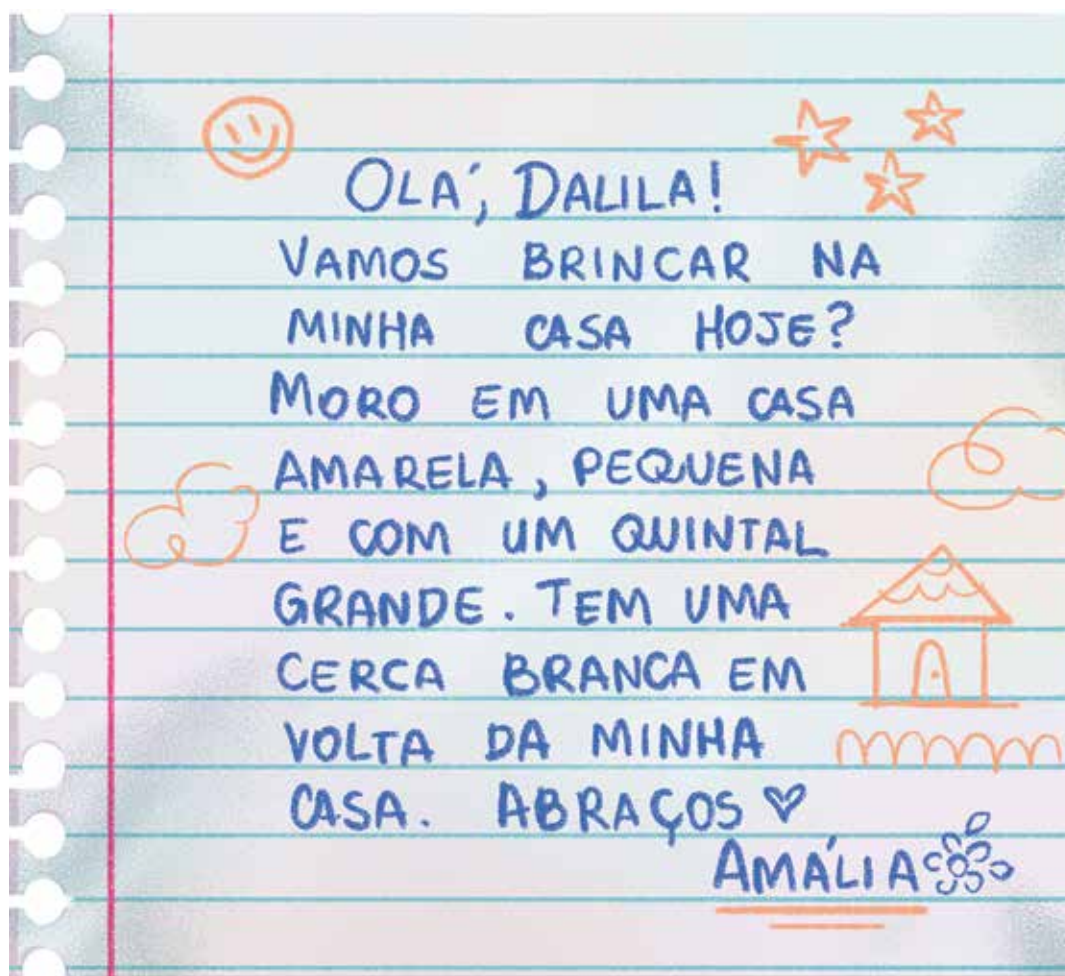 OLÁ, DALILA!
VAMOS BRINCAR NA
MINHA CASA HOJE?
MORO EM UMA CASA
AMARELA, PEQUENA
E COM UM QUINTAL
GRANDE. TEM UMA
CERCA BRANCA EM
VOLTA DA MINHA
CASA. ABRAÇOS
AMÁLIA